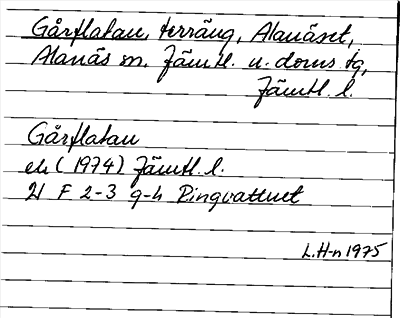 Gårflatan, terräng, Alanäset,
Alanäs sn. Jämtl. n. doms tg,
Jämtl. l.
Gårflatan
ek (1974) Jämtl. l.
21 F 2-3 g-h Ringvattnet
L.H-n 1975